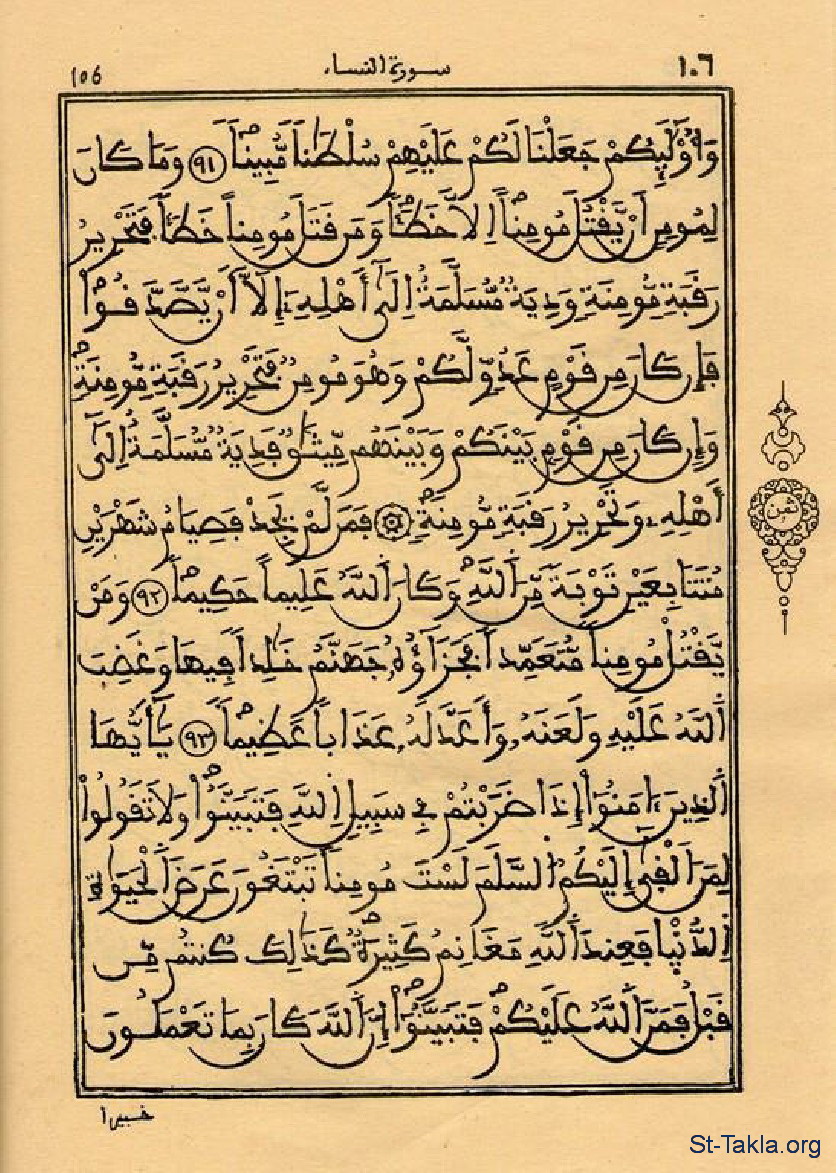 ١٠٦ سورة النساء 106
وَأُوْلَٰٓئِكُمْ جَعَلْنَا لَكُمْ عَلَيْهِمْ سُلْطَٰناً مُّبِيناً ٩١ وَمَا كَانَ
لِمُومِنٍ أَنْ يَّقْتُلَ مُومِناً اِلَّا خَطَـٔاً وَمَن قَتَلَ مُومِناً خَطَـٔاً فَتَحْرِيرُ
رَقَبَةٍ مُّومِنَةٍ وَدِيَةٌ مُّسَلَّمَةٌ اِلَىٰٓ أَهْلِهِۦٓ إِلَّآ أَنْ يَّصَّدَّقُواْ
فَإِن كَانَ مِن قَوْمٍ عَدُوٍّ لَّكُمْ وَهُوَ مُومِنٌ فَتَحْرِيرُ رَقَبَةٍ مُّومِنَةٍ
وَإِن كَانَ مِن قَوْمٍ بَيْنَكُمْ وَبَيْنَهُم مِّيثَٰقٌ فَدِيَةٌ مُّسَلَّمَةٌ اِلَىٰٓ
أَهْلِهِۦ وَتَحْرِيرُ رَقَبَةٍ مُّومِنَةٍ فَمَن لَّمْ يَجِدْ فَصِيَامُ شَهْرَيْنِ
مُتَتَابِعَيْنِ تَوْبَةً مِّنَ اَللَّهِ وَكَانَ اَللَّهُ عَلِيماً حَكِيماً ٩٢ وَمَنْ
يَّقْتُلْ مُومِناً مُّتَعَمِّداً فَجَزَآؤُهُۥ جَهَنَّمُ خَٰلِداً فِيهَا وَغَضِبَ
اَللَّهُ عَلَيْهِ وَلَعَنَهُۥ وَأَعَدَّ لَهُۥ عَذَاباً عَظِيماً ٩٣ يَٰٓأَيُّهَا
اَلَّذِينَ ءَامَنُوٓاْ إِذَا ضَرَبْتُمْ فِي سَبِيلِ اِللَّهِ فَتَبَيَّنُواْ وَلَا تَقُولُواْ
لِمَنَ اَلْقَىٰٓ إِلَيْكُمُ اُلسَّلَمَ لَسْتَ مُومِناً تَبْتَغُونَ عَرَضَ اَلْحَيَوٰةِ
اِلدُّنْيَا فَعِندَ اَللَّهِ مَغَانِمُ كَثِيرَةٌ كَذَٰلِكَ كُنتُم مِّن
قَبْلُ فَمَنَّ اَللَّهُ عَلَيْكُمْ فَتَبَيَّنُوٓاْ إِنَّ اَللَّهَ كَانَ بِمَا تَعْمَلُونَ
خبيرا
ثمن
St-Takla.org